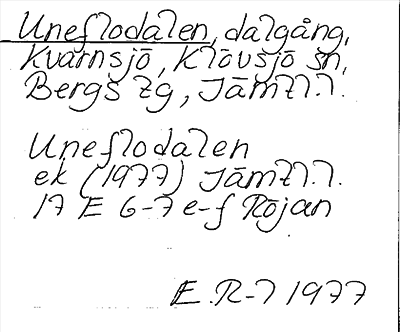 Uneflodalen, dalgång,
Kvarnsjö, Klövsjö sn,
Bergs tg, Jämtl.l.
Uneflodalen
ek (1977) Jämtl.l.
17 E 6-7 e-f Röjan
E.R-l 1977